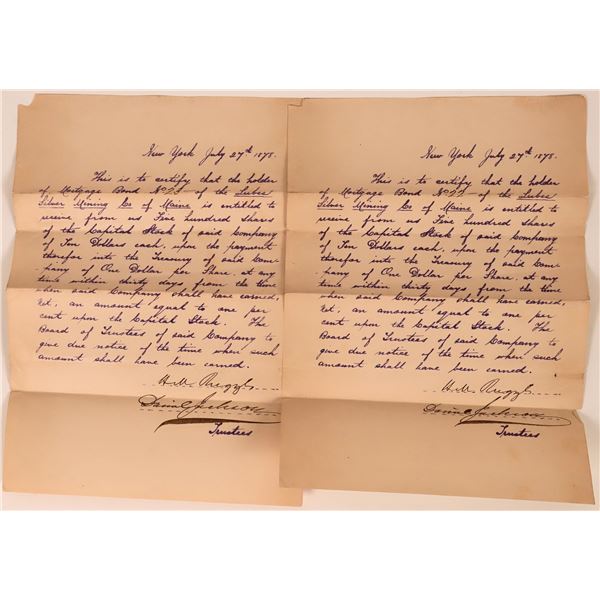 New York July 27th 1878.
This is to certify that the holder
of Mortgage Bond No 23 of the Lubec
Silver Mining Co of Maine is entitled to
receive from us Five hundred Shares
of the Capital Stock of said Company
of Ten Dollars each, upon the payment
therefor into the Treasury of said Com-
-pany of One Dollar per Share, at any
time within thirty days from the time
when said Company shall have earned,
net, an amount equal to one per
cent upon the Capital Stock. The
Board of Trustees of said Company to
give due notice of the time when such
amount shall have been earned.
H. M.
Jackson
Trustees
New York July 27th 1878.
This is to certify that the holder
of Mortgage Bond No of the Lubec
Silver Mining Co of Maine is entitled to
receive from us Five hundred Shares
of the Capital Stock of said Company
of Ten Dollars each, upon the payment
therefor into the Treasury of said Com-
-pany of One Dollar per Share, at any
time within thirty days from the time
when said Company shall have earned,
net, an amount equal to one per
cent upon the Capital Stock. The
Board of Trustees of said Company to
give due notice of the time when such
amount shall have been earned.
H. M.
Jackson
Trustees